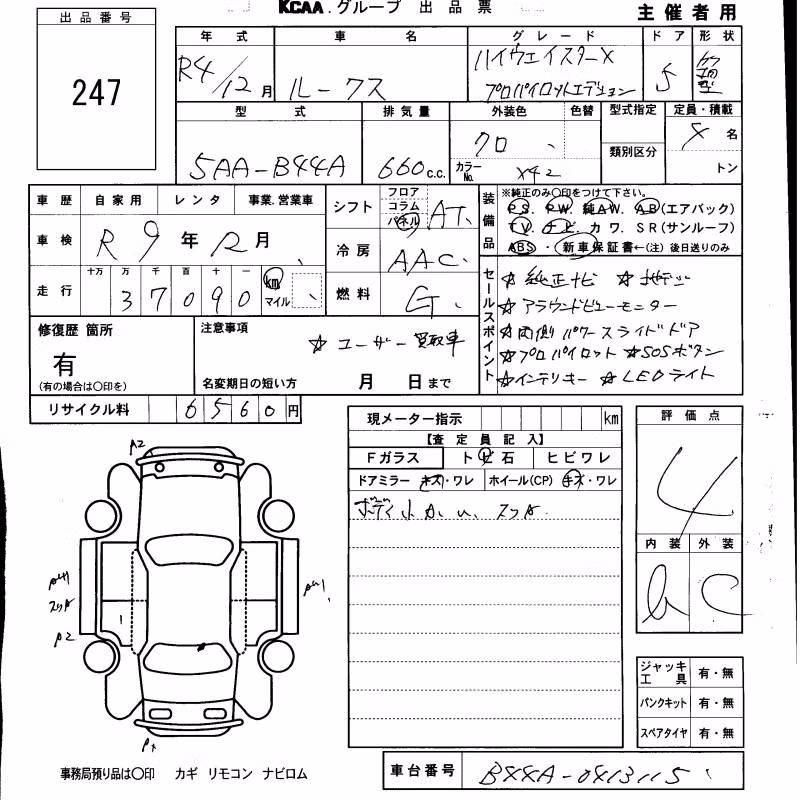 KCAA. グループ 出品票
主催者用
出品番号
247
年式 車名 グレード ドア 形状
R4/12月 ルークス ハイウェイスターX
プロパイロットエディション 5
型式 排気量 外装色 色替 型式指定 定員・積載
5AA-B44A 660c.c. クロ 4名
カラーNo. X42 類別区分 トン
車歴 自家用 レンタ 事業.営業車
車検 R9年12月
走行 十万 万 千 百 十 一
37090 km マイル
シフト フロア コラム パネル AT
冷房 AAC
燃料 G
装備品 ※純正のみ〇印をつけて下さい。
PS. PW. 純AW. AB(エアバック)
TV. ナビ. カワ. SR(サンルーフ)
ABS・新車保証書←(注)後日送りのみ
セールスポイント
☆純正ナビ ☆地デジ
☆アラウンドビューモニター
☆両側パワースライドドア
☆プロパイロット ☆SOSボタン
☆インテリキー ☆LEDライト
修復歴 箇所
有
(有の場合は〇印を)
注意事項
☆ユーザー買取車
名変期日の短い方 月 日まで
リサイクル料 6560円
現メーター指示 km
【査定員記入】
Fガラス トビ石 ヒビワレ
ドアミラー キズ・ワレ ホイール(CP) キズ・ワレ
ボディ小カ.U. スリキ
評価点
4
内装 外装
b C
A2
スリキ
P2
ジャッキ工具 有・無
パンクキット 有・無
スペアタイヤ 有・無
事務局預り品は〇印 カギ リモコン ナビロム
車台番号 B44A-0413115